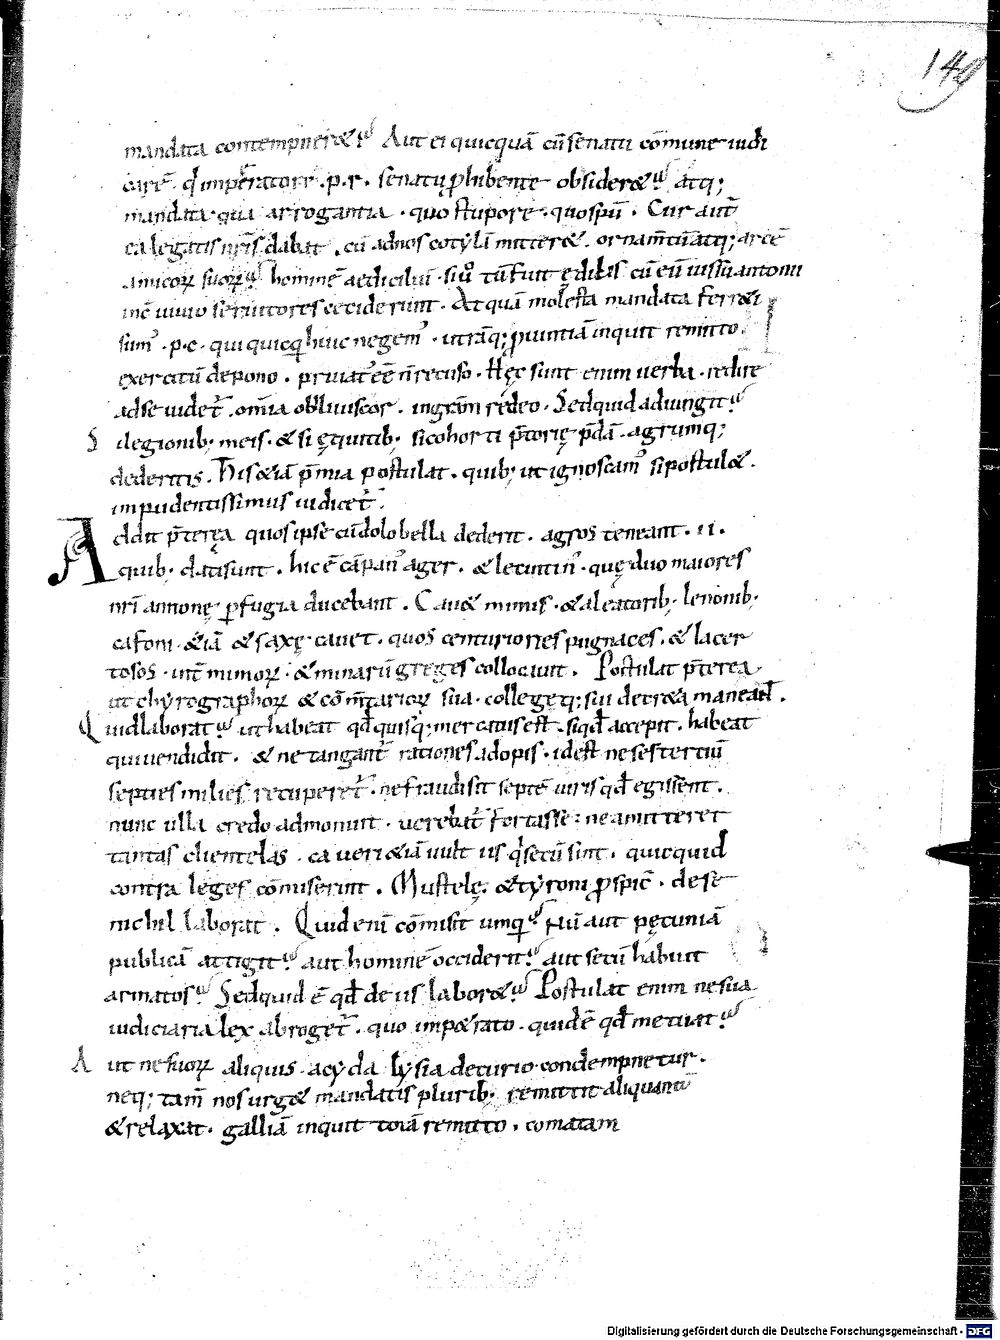 149
mandata contempneret? Aut ei quicquā cū senatu cōmune iudi
caret qd imperatore .p.r. senatu phibente obsideret? atq;
mandata qua arrogantia . quo stupore . quo spū . Cur aut̄
ea legatis nr̄is dabat . cū ad nos cotylā mitteret . ornam̄tū atq; arcē
amicorꝝ suorꝝ? hominē aedicilium . siuͦ tū fuit ędilis cū eū iussu antonii
in cōuiuio seruitores ceciderunt . At quā molesta mandata ferrei
sumꝰ .p.c. qui quicq̄ huic negemꝰ . utrāq; puintiā inquit remitto.
exercitū depono . priuatꝰ eē n̄ recuso . Hęc sunt enim uerba . redire
ad se uidet̄ . om̄ia obliuiscor . in grām redeo . Sed quid adiungit?
S ilegionib; meis . & si ęquitib; si cohorti p̄torię p̄dā . agrumq;
dederitis . His etiā p̄mia postulat . quib; ut ignoscamꝰ si postulet .
impudentissimus iudicet̄ .
Addit p̄terea quos ipse cū dolobella dederit . agros teneant . ii.
quib; dati sunt . hic ē cāpanꝰ ager . & leontinꝰ . quę duo maiores
nr̄i annonę pfugia ducebant . Cauet mimis . & aleatorib; lenonib;
cafoni . etiā & saxę cauet . quos centuriones pugnaces . & lacer
tosos . int̄ mimorꝝ . & mimarū greges collocauit . Postulat p̄terea
ut chyrographorꝝ & cōm̄tariorꝝ sua . collegęq; sui decreta maneant .
Quid laborat? ut habeat qd quisq; mercatus est . si qd accepit . habeat
qui uendidit . & ne tangant̄ rationes ad opis . id est ne sestertiū
septies milies recuperet̄ . ne fraudi sit septē uiris qd egissent .
nunc ulla credo admonuit . uerebat̄ fortasse : ne amitteret
tantas clientelas . caueri etiā uult iis q secū sint . quicquid
contra leges cōmiserint . Mustelę . & tyroni pspicit . de se
nichil laborat . Quid enī cōmisit umq̄? Nū aut pęcuniā
publicā attigit? aut hominē occiderit? aut secū habuit
armatos? Sed quid ē qd de iis laboret? Postulat enim ne sua
iudiciaria lex abroget̄ . quo impetrato . quid ē qd metuat?
A ut ne suorꝝ aliquis . acyda lysiade curio condempnetur .
neq; tam̄ nos urget mandatis plurib; remittit aliquantū
& relaxat . galliā inquit totā remitto . comatam
Digitalisierung gefördert durch die Deutsche Forschungsgemeinschaft - DFG